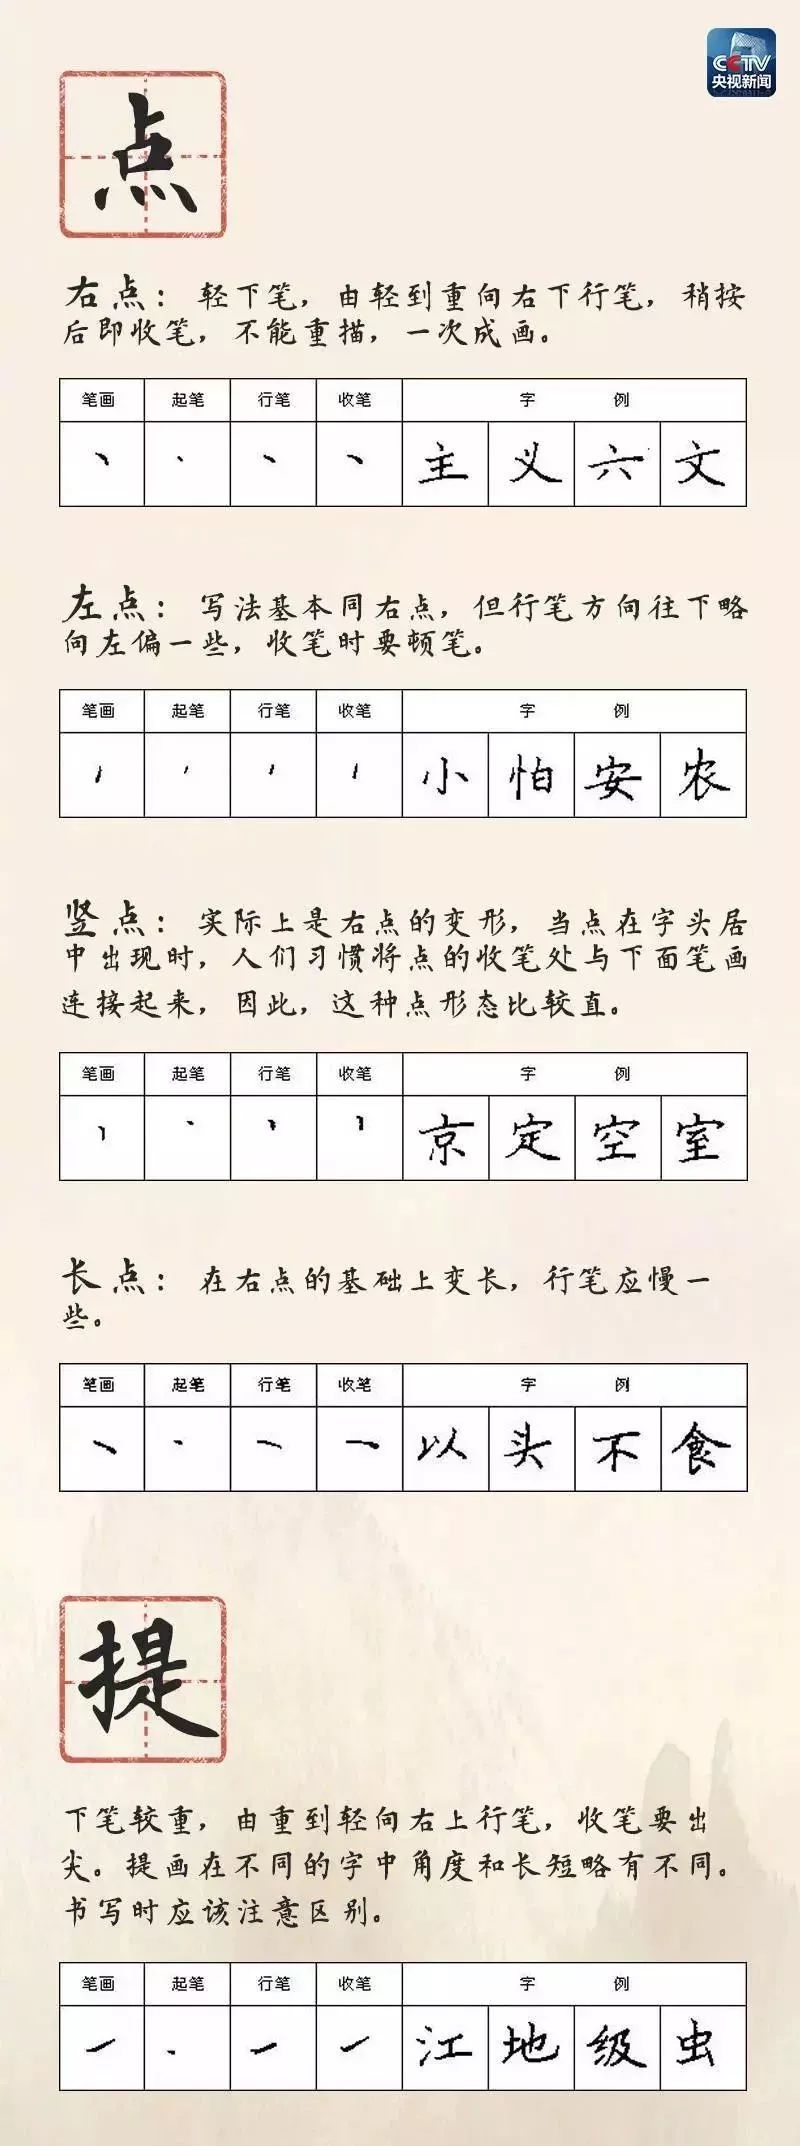 CCTV
央视新闻
点
右点：轻下笔，由轻到重向右下行笔，稍按
后即收笔，不能重描，一次成画。
笔画 起笔 行笔 收笔 字 例
丶 主 义 六 文
左点：写法基本同右点，但行笔方向往下略
向左偏一些，收笔时要顿笔。
笔画 起笔 行笔 收笔 字 例
小 怕 安 农
竖点：实际上是右点的变形，当点在字头居
中出现时，人们习惯将点的收笔处与下面笔画
连接起来，因此，这种点形态比较直。
笔画 起笔 行笔 收笔 字 例
京 定 空 室
长点：在右点的基础上变长，行笔应慢一
些。
笔画 起笔 行笔 收笔 字 例
以 头 不 食
提
下笔较重，由重到轻向右上行笔，收笔要出
尖。提画在不同的字中角度和长短略有不同。
书写时应该注意区别。
笔画 起笔 行笔 收笔 字 例
江 地 级 虫